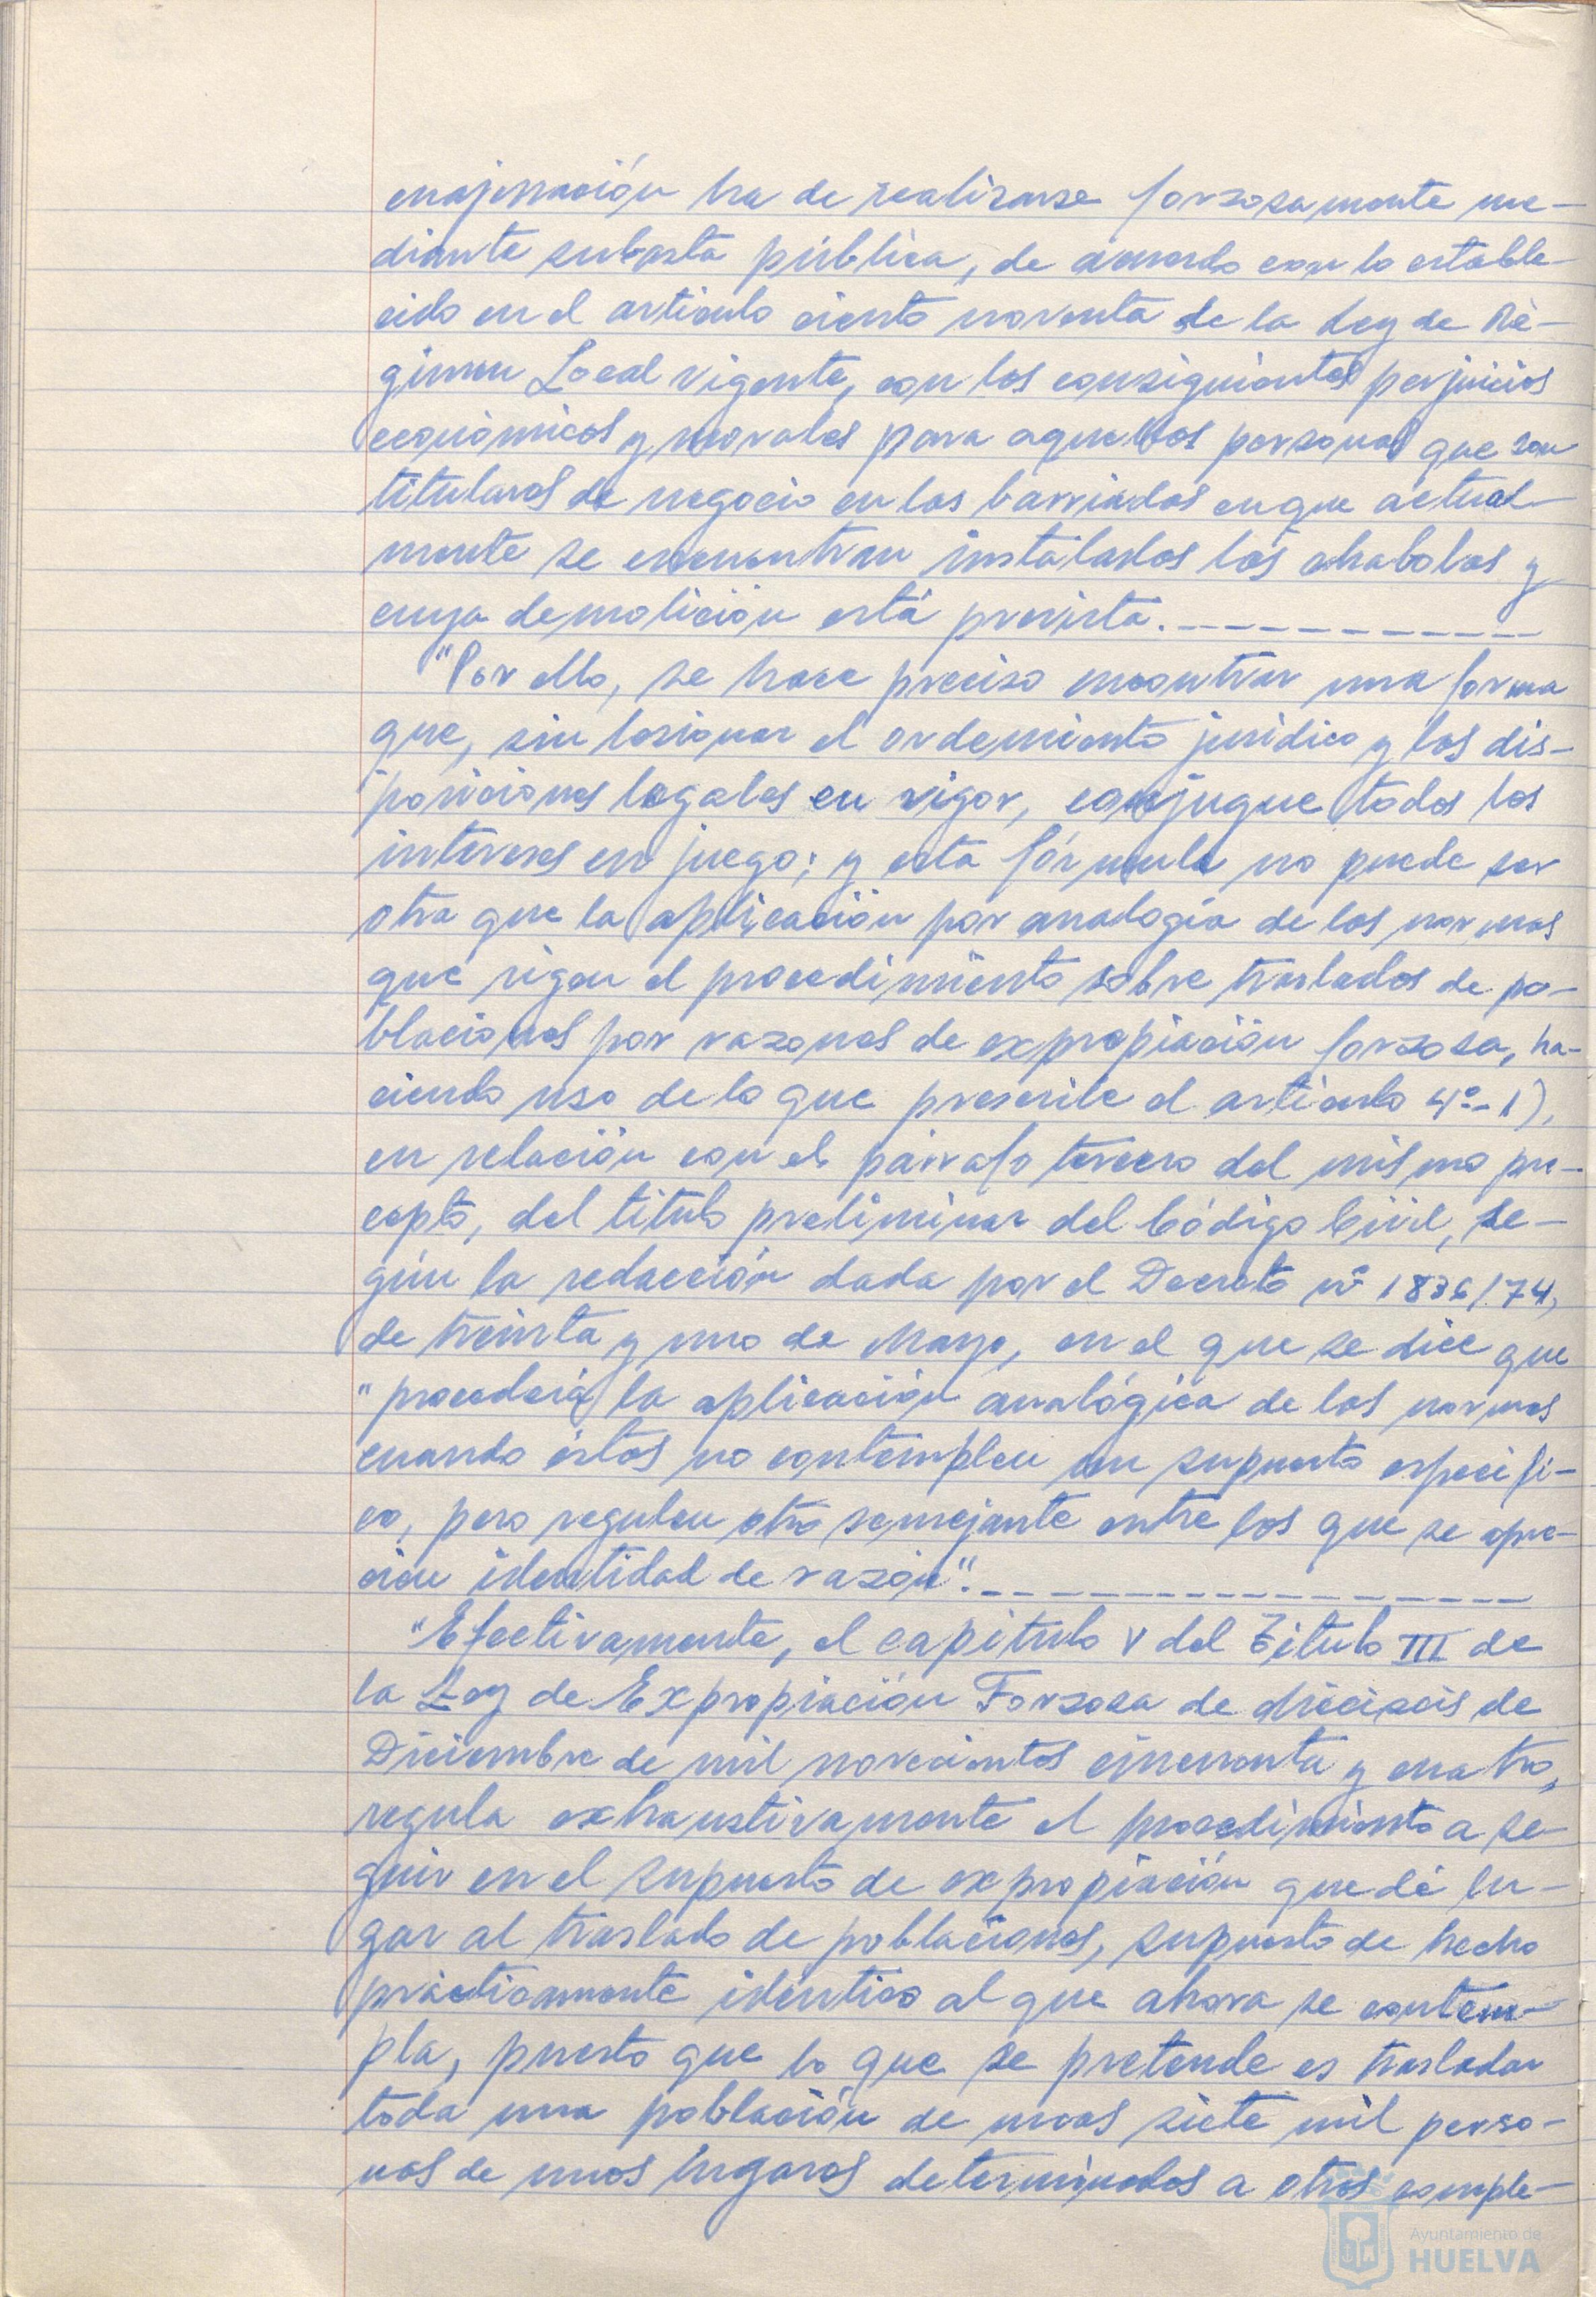 enajenación ha de realizarse forzosamente me-
diante subasta pública, de acuerdo con lo estable-
cido en el artículo ciento noventa de la Ley de Ré-
gimen Local vigente, con los consiguientes perjuicios
económicos y morales para aquellas personas que son
titulares de negocio en las barriadas en que actual-
mente se encuentran instalados las chabolas y
cuya demolición está prevista.
"Por ello, se hace preciso encontrar una forma
que, sin lesionar el ordemiento jurídico y las dis-
posiciones legales en vigor, conjugue todos los
intereses en juego; y esta fórmula no puede ser
otra que la aplicación por analogía de las normas
que rigen el procedimiento sobre traslados de po-
blaciones por razones de expropiación forzosa, ha-
ciendo uso de lo que prescribe el artículo 4º-1),
en relación con el párrafo tercero del mismo pre-
cepto, del título preliminar del Código Civil, se-
gún la redacción dada por el Decreto nº 1836/74,
de treinta y uno de Mayo, en el que se dice que
"procederá la aplicación analógica de las normas
cuando éstas no contemplen un supuesto específi-
co, pero regulen otro semejante entre los que se apre-
cie identidad de razón".
"Efectivamente, el capítulo V del Título III de
la Ley de Expropiación Forzosa de dieciseis de
Diciembre de mil novecientos cincuenta y cuatro,
regula exhaustivamente el procedimiento a se-
guir en el supuesto de expropiación que dé lu-
gar al traslado de poblaciones, supuesto de hecho
prácticamente idéntico al que ahora se contem-
pla, puesto que lo que se pretende es trasladar
toda una población de unas siete mil perso-
nas de unos lugares determinados a otros comple-
Ayuntamiento de
HUELVA